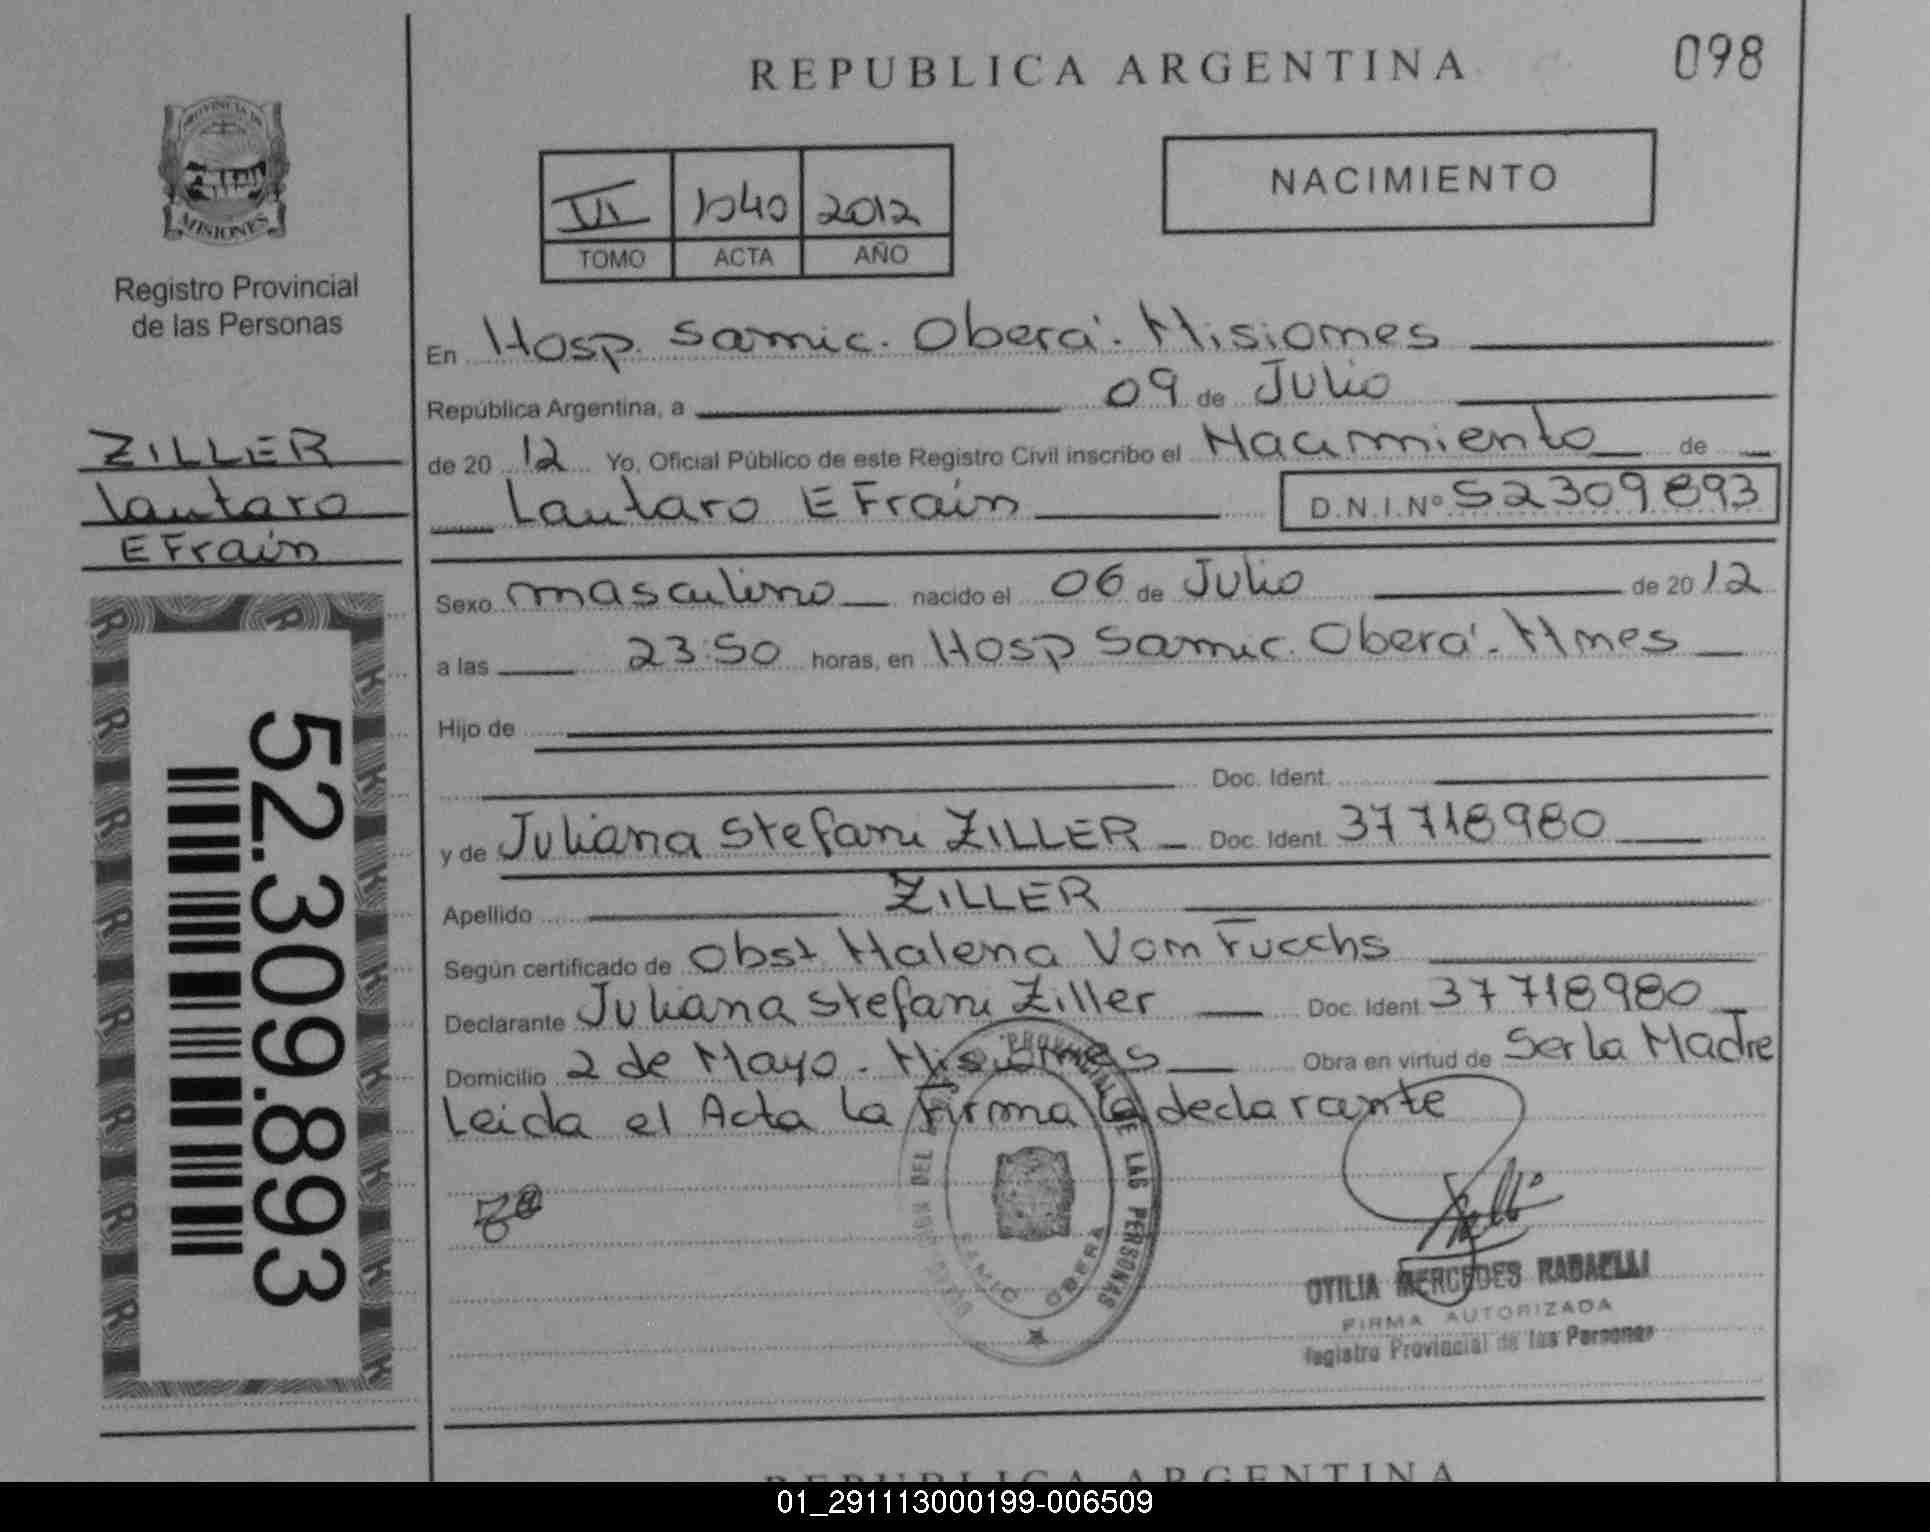 REPUBLICA ARGENTINA
098
PROVINCIA DE
MISIONES
Registro Provincial
de las Personas
1040 2012
TOMO ACTA AÑO
NACIMIENTO
En Hosp. Samic. Oberá. Misiones
República Argentina, a 09 de Julio
de 20 12 Yo, Oficial Público de este Registro Civil inscribo el Nacimiento de
Lautaro EFraín D.N.I.Nº 52309893
ZILLER
Lautaro
EFraín
Sexo masculino nacido el 06 de Julio de 20 12
a las 23:50 horas, en Hosp Samic. Oberá. Mnes
Hijo de
Doc. Ident.
y de Juliana Stefani ZILLER Doc. Ident. 37718980
Apellido ZILLER
Según certificado de Obst. Malena Von Fucchs
Declarante Juliana Stefani Ziller Doc. Ident 37718980
Domicilio 2 de Mayo - Misiones Obra en virtud de Ser la Madre
Leida el Acta la Firma la declarante
52.309.893
PROVINCIAL DE LAS PERSONAS
SAMIC OBERA
OTILIA MERCEDES RABAELLI
FIRMA AUTORIZADA
Registro Provincial de las Personas
REPUBLICA ARGENTINA
01_291113000199-006509